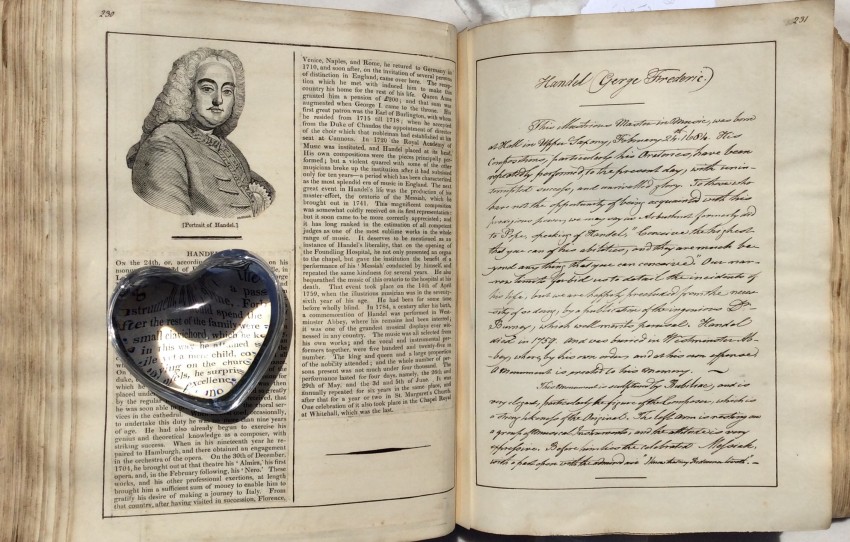 230
[Portrait of Handel.]
HANDEL
On the 24th, or, according
, and spend the
after the rest of the family were
small clavichord, which he k
in this way he attained
playing on the church
he surprise
excellence
vices in the cathedral.
to undertake this duty he
of age. He had also already begun to exercise his
genius and theoretical knowledge as a composer, with
striking success. When in his nineteenth year he re-
paired to Hamburgh, and there obtained an engagement
in the orchestra of the opera. On the 30th of December,
1704, he brought out at that theatre his ‘Almira,’ his first
opera, and, in the February following, his ‘Nero.’ These
works, and his other professional exertions, at length
brought him a sufficient sum of money to enable him to
gratify his desire of making a journey to Italy. From
that country, after having visited in succession, Florence,
Venice, Naples, and Rome, he returned to Germany in
1710, and soon after, on the invitation of several persons
of distinction in England, came over here. The recep-
tion which he met with induced him to make this
country his home for the rest of his life. Queen Anne
granted him a pension of £200; and that sum was
augmented when George I. came to the throne. His
first great patron was the Earl of Burlington, with whom
he resided from 1715 till 1718; when he accepted
from the Duke of Chandos the appointment of director
of the choir which that nobleman had established at his
seat at Cannons. In 1720 the Royal Academy of
Music was instituted, and Handel placed at its head.
His own compositions were the pieces principally per-
formed; but a violent quarrel with some of the other
musicians broke up the institution after it had subsisted
only for ten years—a period which has been characterized
as the most splendid era of music in England. The next
great event in Handel's life was the production of his
master-effort, the oratorio of the Messiah, which he
brought out in 1741. This magnificent composition
was somewhat coldly received on its first representation;
but it soon came to be more correctly appreciated; and
it has long ranked in the estimation of all competent
judges as one of the most sublime works in the whole
range of music. It deserves to be mentioned as an
instance of Handel's liberality, that on the opening of
the Foundling Hospital, he not only presented an organ
to the chapel, but gave the institution the benefit of a
performance of his ‘Messiah’ conducted by himself, and
repeated the same kindness for several years. He also
bequeathed the music of this oratorio to the hospital at his
death. That event took place on the 14th of April
1759, when the illustrious musician was in the seventy-
sixth year of his age. He had been for some time
before wholly blind. In 1784, a century after his birth,
a commemoration of Handel was performed in West-
minster Abbey, where his remains had been interred;
it was one of the grandest musical displays ever wit-
nessed in any country. The music was all selected from
his own works; and the vocal and instrumental per-
formers together, were five hundred and twenty-five in
number. The king and queen and a large proportion
of the nobility attended; and the whole number of per-
sons present was not much under four thousand. The
performance lasted for four days, namely, the 26th and
29th of May, and the 3d and 5th of June. It was
annually repeated for six years in the same place, and
after that for a year or two in St. Margaret's Church.
One celebration of it also took place in the Chapel Royal
at Whitehall, which was the last.
231
Handel (Gerge Frederic.)
This illustrious Master in Music, was born
at Hall in Upper Saxony, February 24th 1684. His
Compositions, particularly his Oratorios, have been
repeatedly performed to the present day, with unin-
terrupted success, and unrivalled glory. To those who
have not the opportunity of being acquainted with his
prodigious powers, we may say as Arbuthnot formerly did
to Pope, speaking of Handel, "Conceive the highest
that you can of his abilities, and they are much be-
yond any thing that you can conceive." Our nar-
row limits forbid us to detail the incidents of
his life, but we are happily precluded from the neces-
sity of so doing, by a publication of the ingenious Dr
Burney, which well merits perusal. Handel
died in 1759. and was buried in Westminster Ab-
bey, where, by his own order, and at his own expence
a Monument is erected to his memory.
This Monument is sculptur'd by Roubiliac, and is
very elegant, particularly the figure of the Composer, which is
a strong likeness of the Original. The left arm is resting on
a group of Musical Instruments, and the attitude is very
expressive. Before him lies the celebrated Messiah,
with a part open with the admired air "I know that my Redeemer liveth".